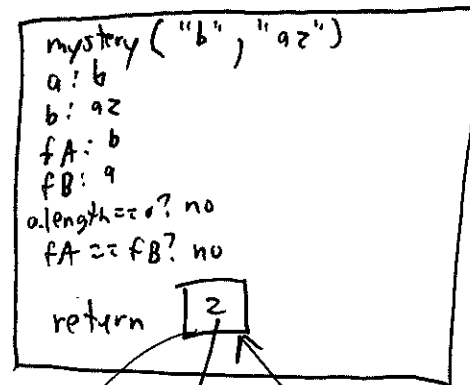 mystery ("b", "az")
a: b
b: az
fA: b
fB: a
a.length==0? no
fA == fB? no
return 2